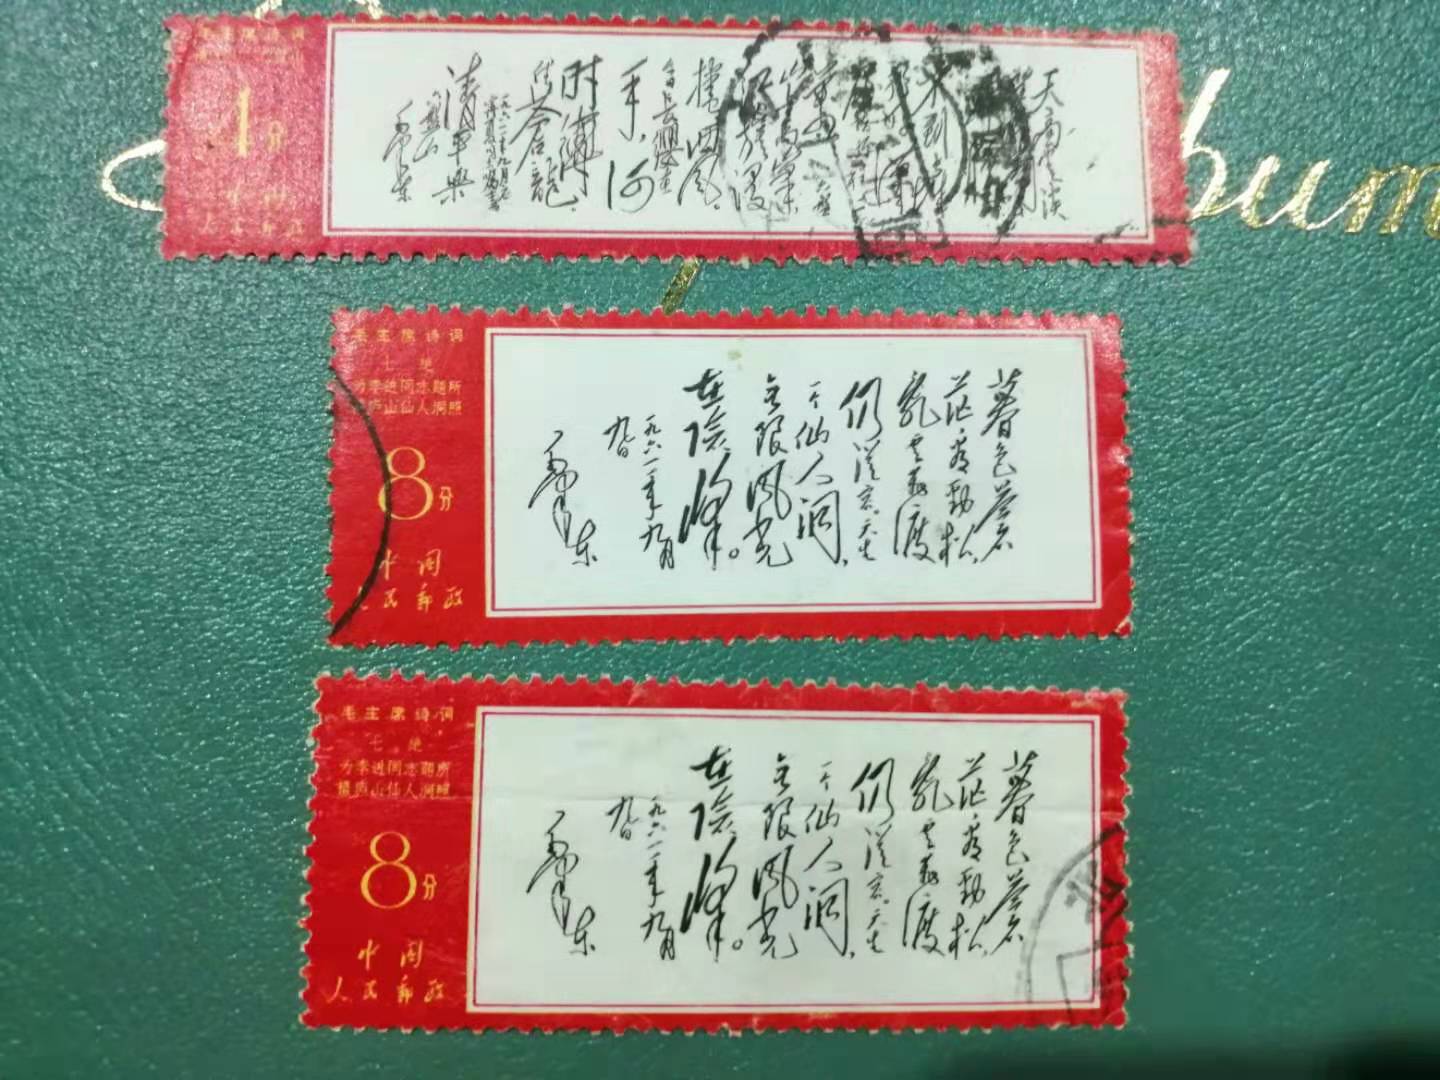 毛主席诗词
1分
中国
人民邮政
天高云淡
捲西风。
今日長缨在
手,何
时縛
住苍龍。
清平樂
六盘山
毛泽东
album
毛主席诗词
七绝
为李进同志题所
摄庐山仙人洞照
8分
中国
人民邮政
暮色苍
茫看劲松,
乱云飛渡
仍從容。天生
一个仙人洞,
无限风光
在险峰。
一九六一年九月
九日
毛泽东
毛主席诗词
七绝
为李进同志题所
摄庐山仙人洞照
8分
中国
人民邮政
暮色苍
茫看劲松,
乱云飛渡
仍從容。天生
一个仙人洞,
无限风光
在险峰。
一九六一年九月
九日
毛泽东